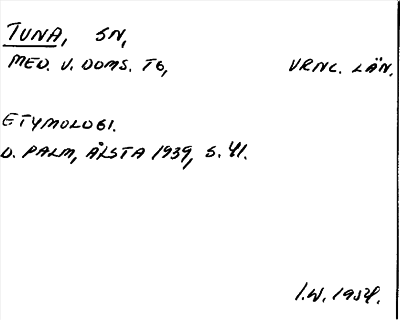 TUNA, SN,
MED. V. DOMS. TG, VRML. LÄN.
ETYMOLOGI.
D. PALM, ÅLSTA 1939, S. 41.
I.W. 1954.